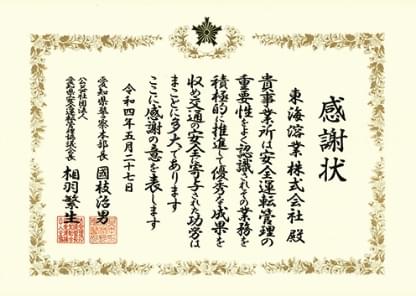 感謝状
東海溶業株式会社 殿
貴事業所は安全運転管理の
重要性をよく認識されその業務を
積極的に推進して優秀な成果を
収め交通の安全に寄与された功労は
まことに多大であります
ここに感謝の意を表します
令和四年五月二十七日
愛知県警察本部長 國枝治男
公益社団法人
愛知県安全運転管理協議会長 相羽繁生